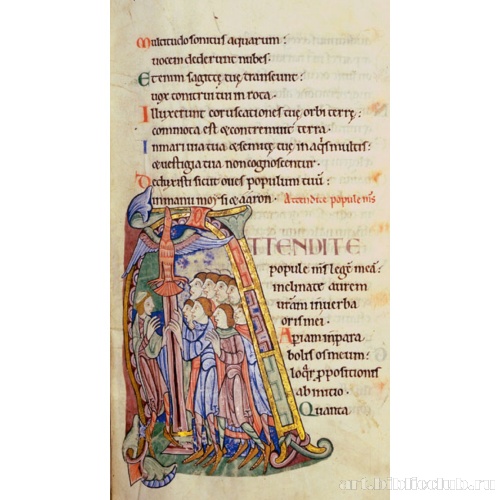 Multitudo sonitus aquarum:
uocem dederunt nubes.
Etenim sagittę tuę transeunt:
uox tonitrui tui in rota.
Illuxerunt coruscationes tuę orbi terrę:
commota est & contremuit terra.
In mari uia tua & semitę tuę in aquis multis:
& uestigia tua non cognoscentur.
Deduxisti sicut oues populum tuū:
in manu moysi & aaron. Attendite popule m̄s
ATTENDITE
popule m̄s legē meā:
inclinate aurem
urām in uerba
oris mei.
Aperiam in para
bolis os meum:
loq̄r ꝓpositionis
ab inicio.
Quanta
art.biblioclub.ru